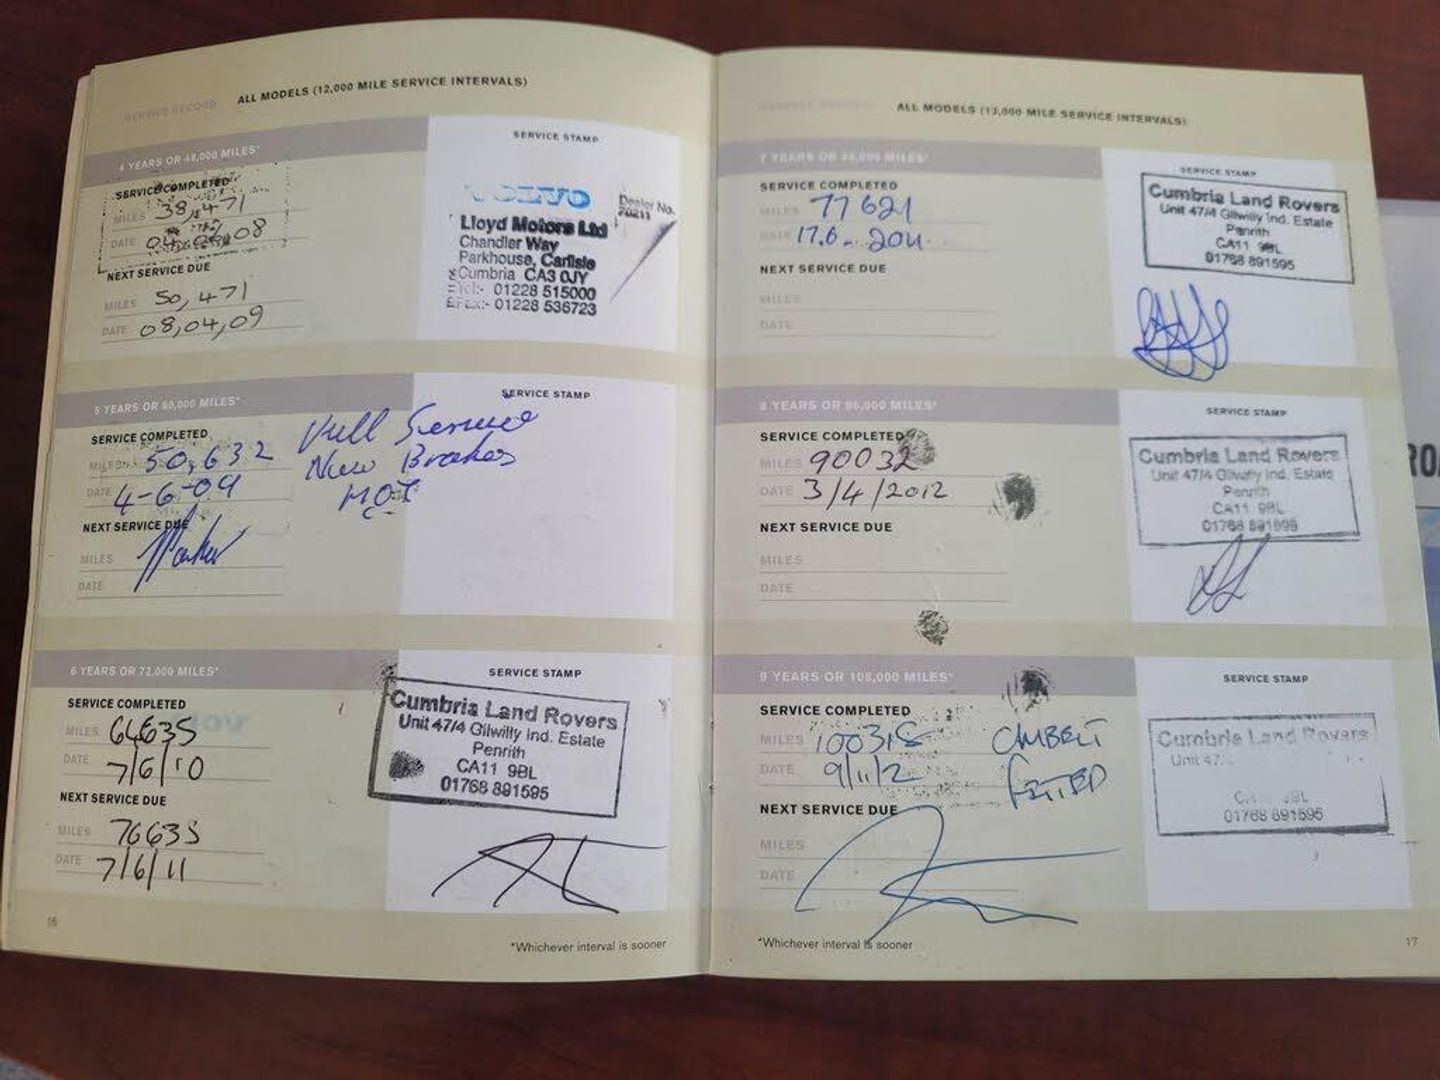 SERVICE RECORD ALL MODELS (12,000 MILE SERVICE INTERVALS)
4 YEARS OR 48,000 MILES*
SERVICE STAMP
SERVICE COMPLETED
MILES 38,471
DATE 08
NEXT SERVICE DUE
MILES 50,471
DATE 08,04,09
VOLVO
Dealer No.
Lloyd Motors Ltd
Chandler Way
Parkhouse, Carlisle
Cumbria CA3 0JY
Tel:- 01228 515000
Fax:- 01228 536723
5 YEARS OR 60,000 MILES*
SERVICE STAMP
SERVICE COMPLETED
MILES 50,632
DATE 4-6-09
Full Service
New Brakes
MOT
NEXT SERVICE DUE
MILES
DATE
6 YEARS OR 72,000 MILES*
SERVICE STAMP
SERVICE COMPLETED
MILES 64635
DATE 7/6/10
NEXT SERVICE DUE
MILES 76635
DATE 7/6/11
Cumbria Land Rovers
Unit 47/4 Gilwilly Ind. Estate
Penrith
CA11 9BL
01768 891595
16
*Whichever interval is sooner
ALL MODELS (12,000 MILE SERVICE INTERVALS)
7 YEARS OR 84,000 MILES*
SERVICE STAMP
SERVICE COMPLETED
MILES 77621
DATE 17.6-2011.
NEXT SERVICE DUE
MILES
DATE
Cumbria Land Rovers
Unit 47/4 Gilwilly Ind. Estate
Penrith
CA11 9BL
01768 891595
8 YEARS OR 96,000 MILES*
SERVICE STAMP
SERVICE COMPLETED
MILES 90032
DATE 3/4/2012
NEXT SERVICE DUE
MILES
DATE
Cumbria Land Rovers
Unit 47/4 Gilwilly Ind. Estate
Penrith
CA11 9BL
01768 891595
9 YEARS OR 108,000 MILES*
SERVICE STAMP
SERVICE COMPLETED
MILES 100315
DATE 9/11/2
CAMBELT
FITTED
NEXT SERVICE DUE
MILES
DATE
Cumbria Land Rovers
Unit 47/
9BL
01768 891595
*Whichever interval is sooner
17